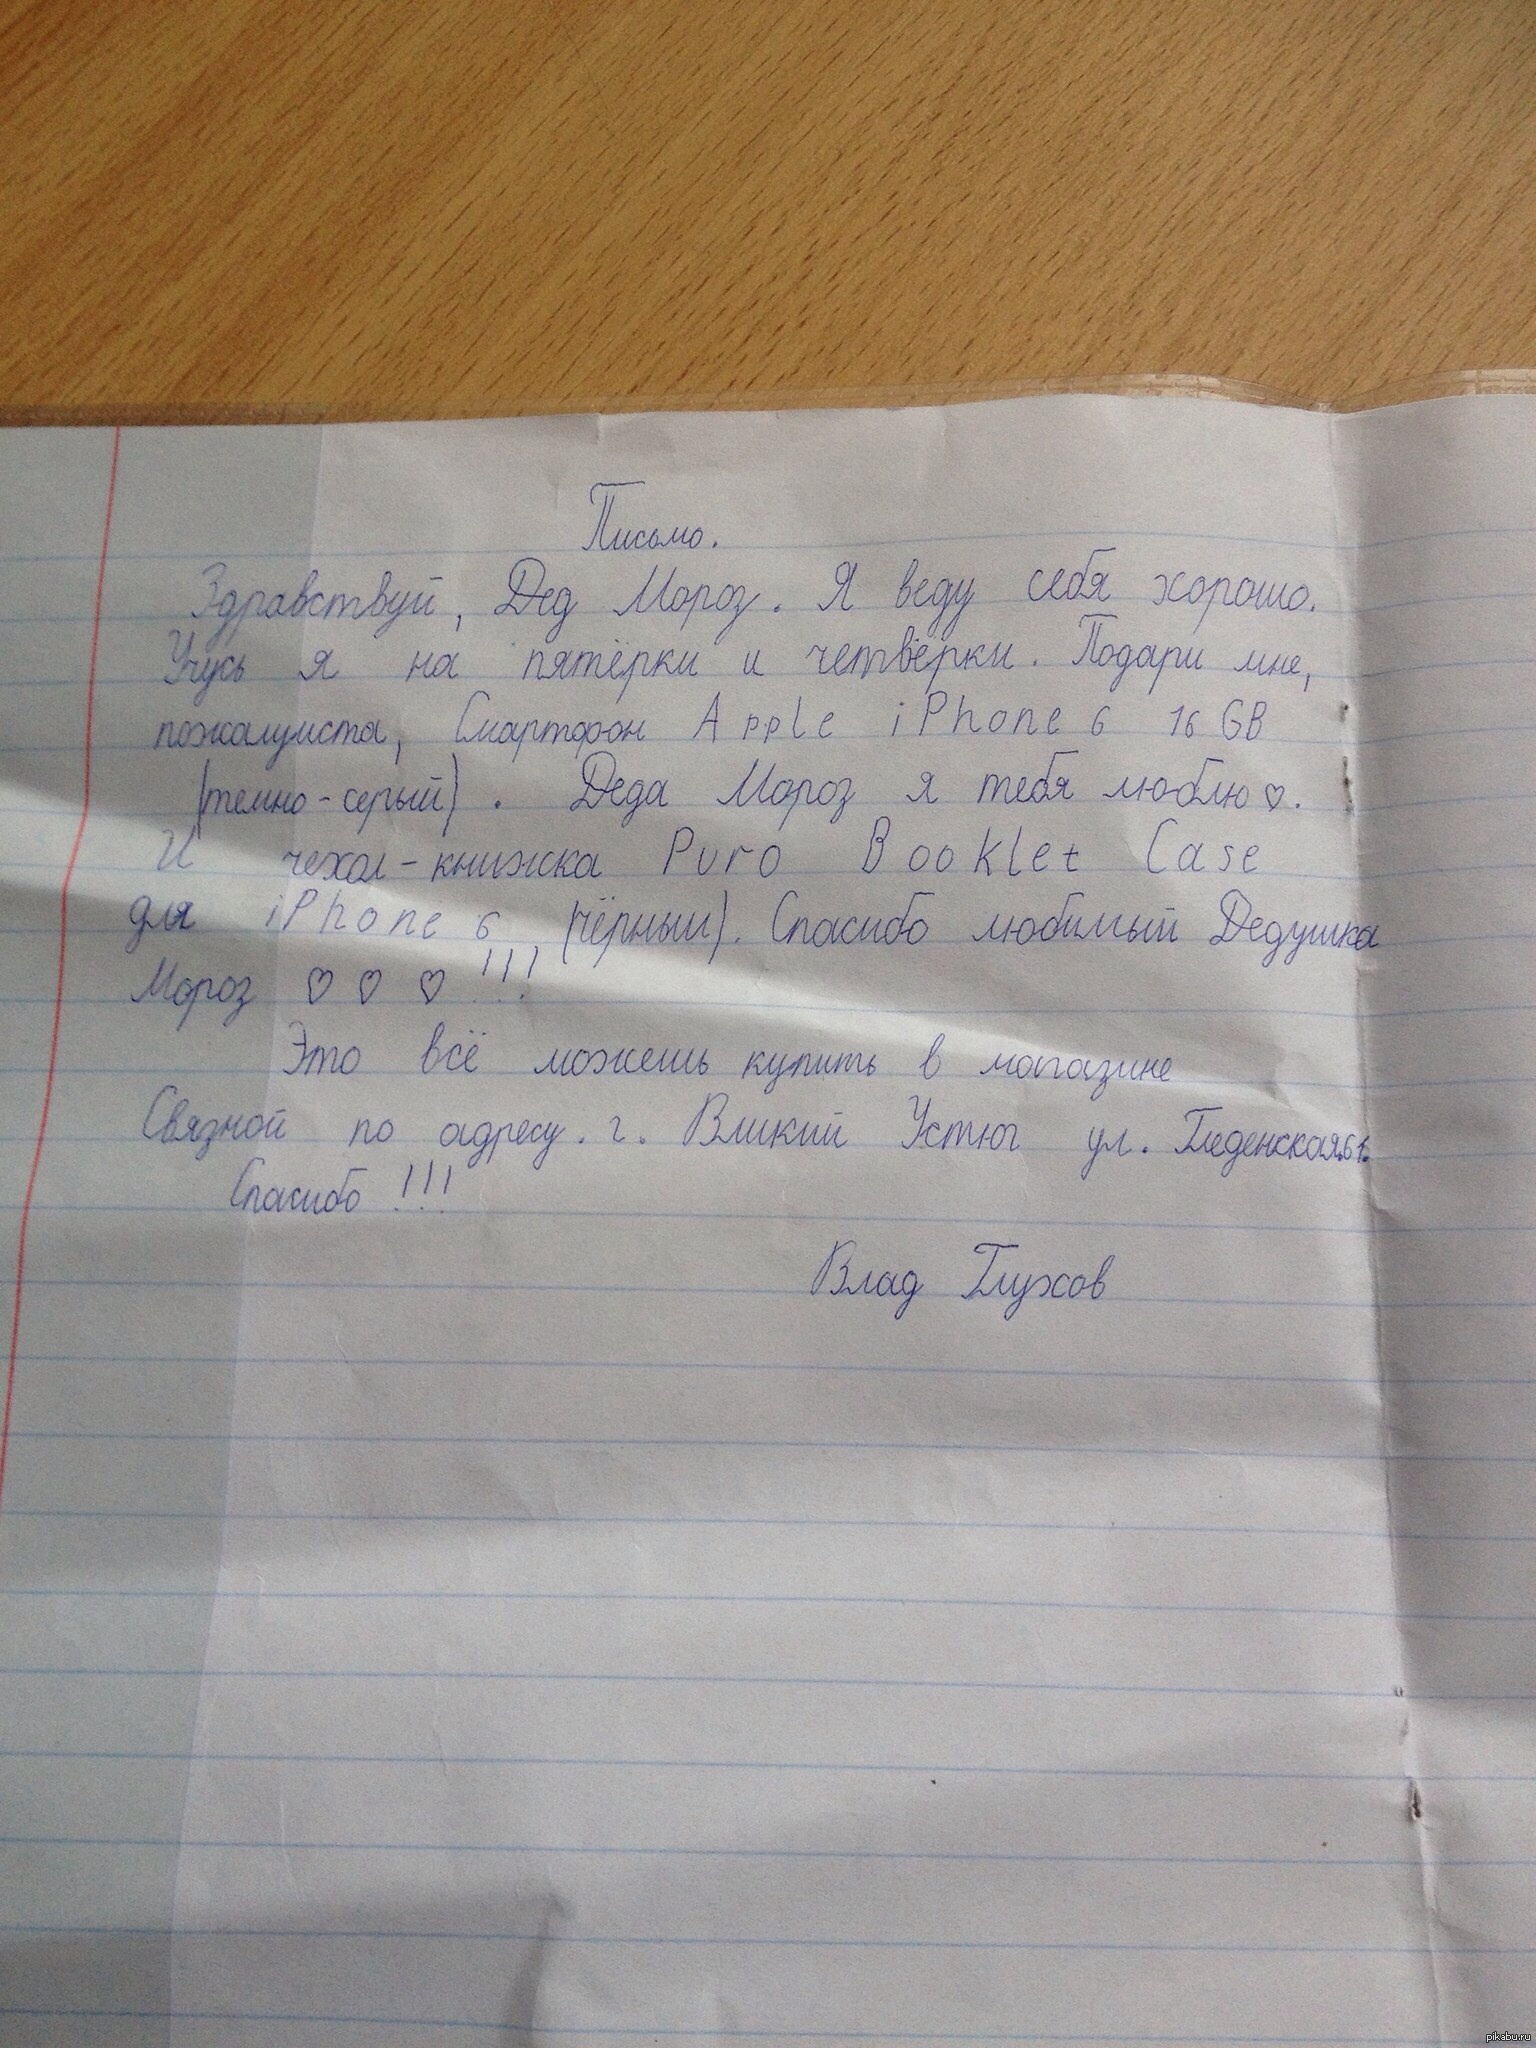 Письмо.
Здравствуй, Дед Мороз. Я веду себя хорошо.
Учусь я на пятёрки и четвёрки. Подари мне,
пожалуйста, Смартфон Apple iPhone 6 16 GB
(темно-серый). Деда Мороз я тебя люблю ♡.
И чехол-книжка Puro Booklet Case
для iPhone 6 (чёрный). Спасибо любимый Дедушка
Мороз ♡ ♡ ♡ !!!
Это всё можешь купить в магазине
Связной по адресу. г. Вликий Устюг ул. Гледенская.61.
Спасибо !!!
Влад Глухов
pikabu.ru